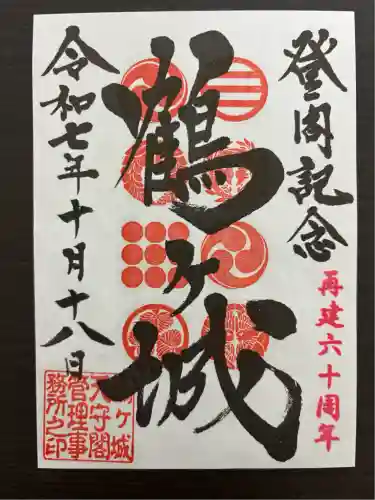 登閣記念
再建六十周年
鶴ヶ城
令和七年十月十八日
鶴ヶ城
天守閣
管理事
務所之印